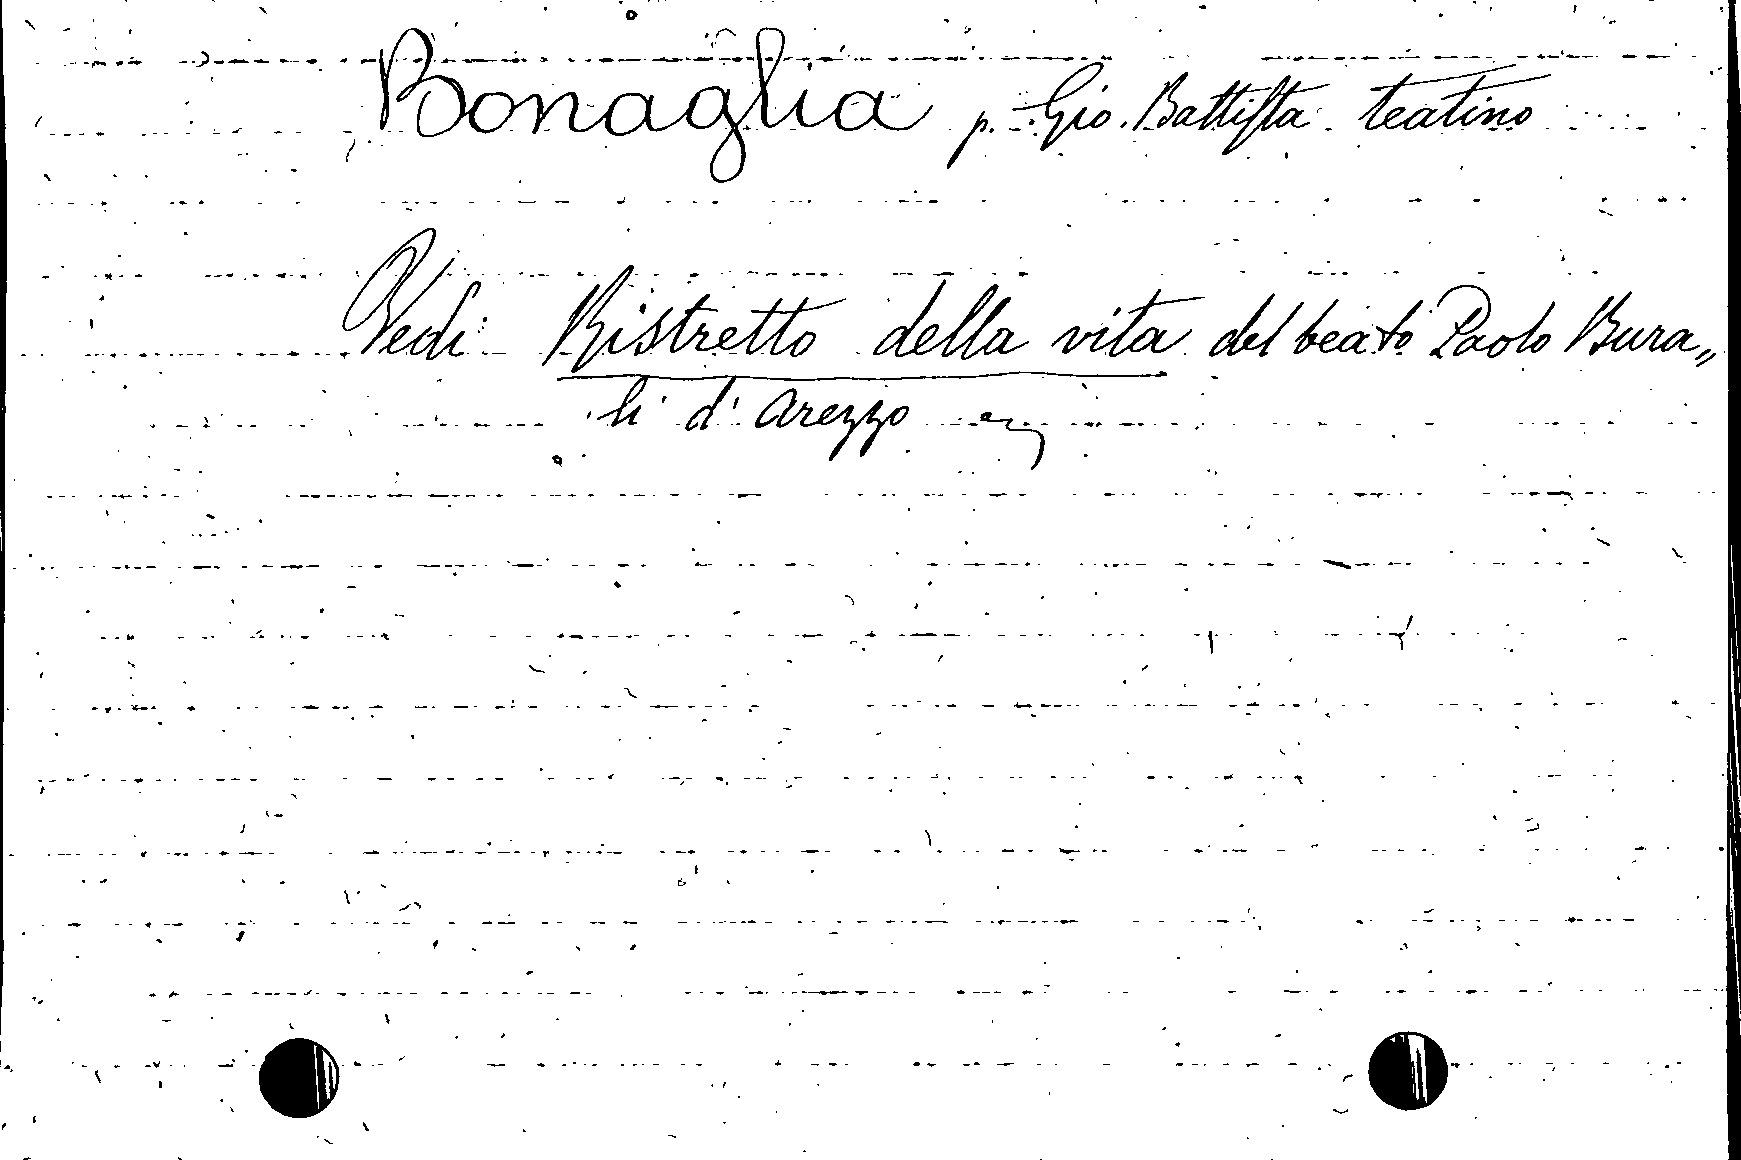 Bonaglia p. Gio. Battista teatino
Vedi Ristretto della vita del beato Paolo Bura„
li d' Arezzo